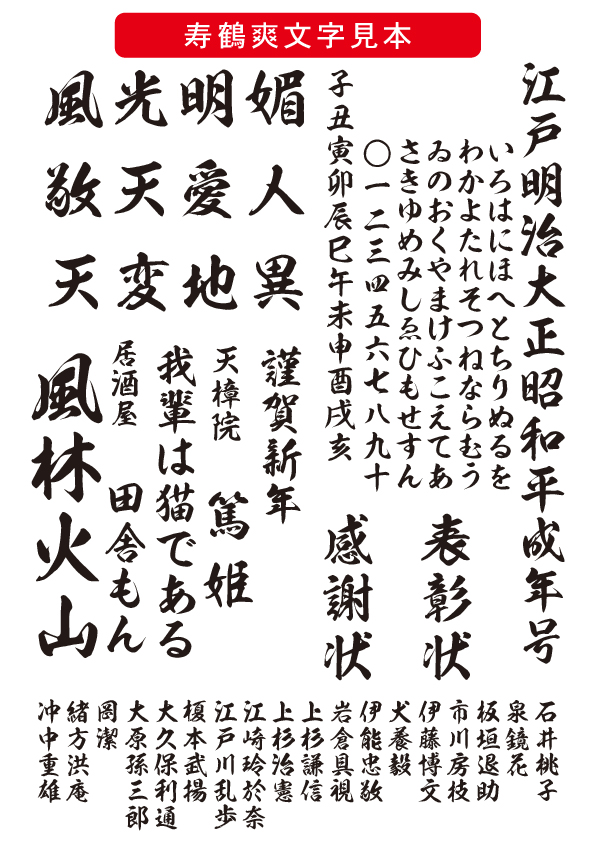 寿鶴爽文字見本
江戸明治大正昭和平成年号
いろはにほへとちりぬるを
わかよたれそつねならむう
ゐのおくやまけふこえてあ
さきゆめみしゑひもせすん
〇一二三四五六七八九十
子丑寅卯辰巳午未申酉戌亥
表彰状
感謝状
媚人異
明愛地
光天変
風敬天
謹賀新年
天樟院
篤姫
我輩は猫である
居酒屋
田舎もん
風林火山
石井桃子
泉鏡花
板垣退助
市川房枝
伊藤博文
犬養毅
伊能忠敬
岩倉具視
上杉謙信
上杉治憲
江崎玲於奈
江戸川乱歩
榎本武揚
大久保利通
大原孫三郎
岡潔
緒方洪庵
沖中重雄